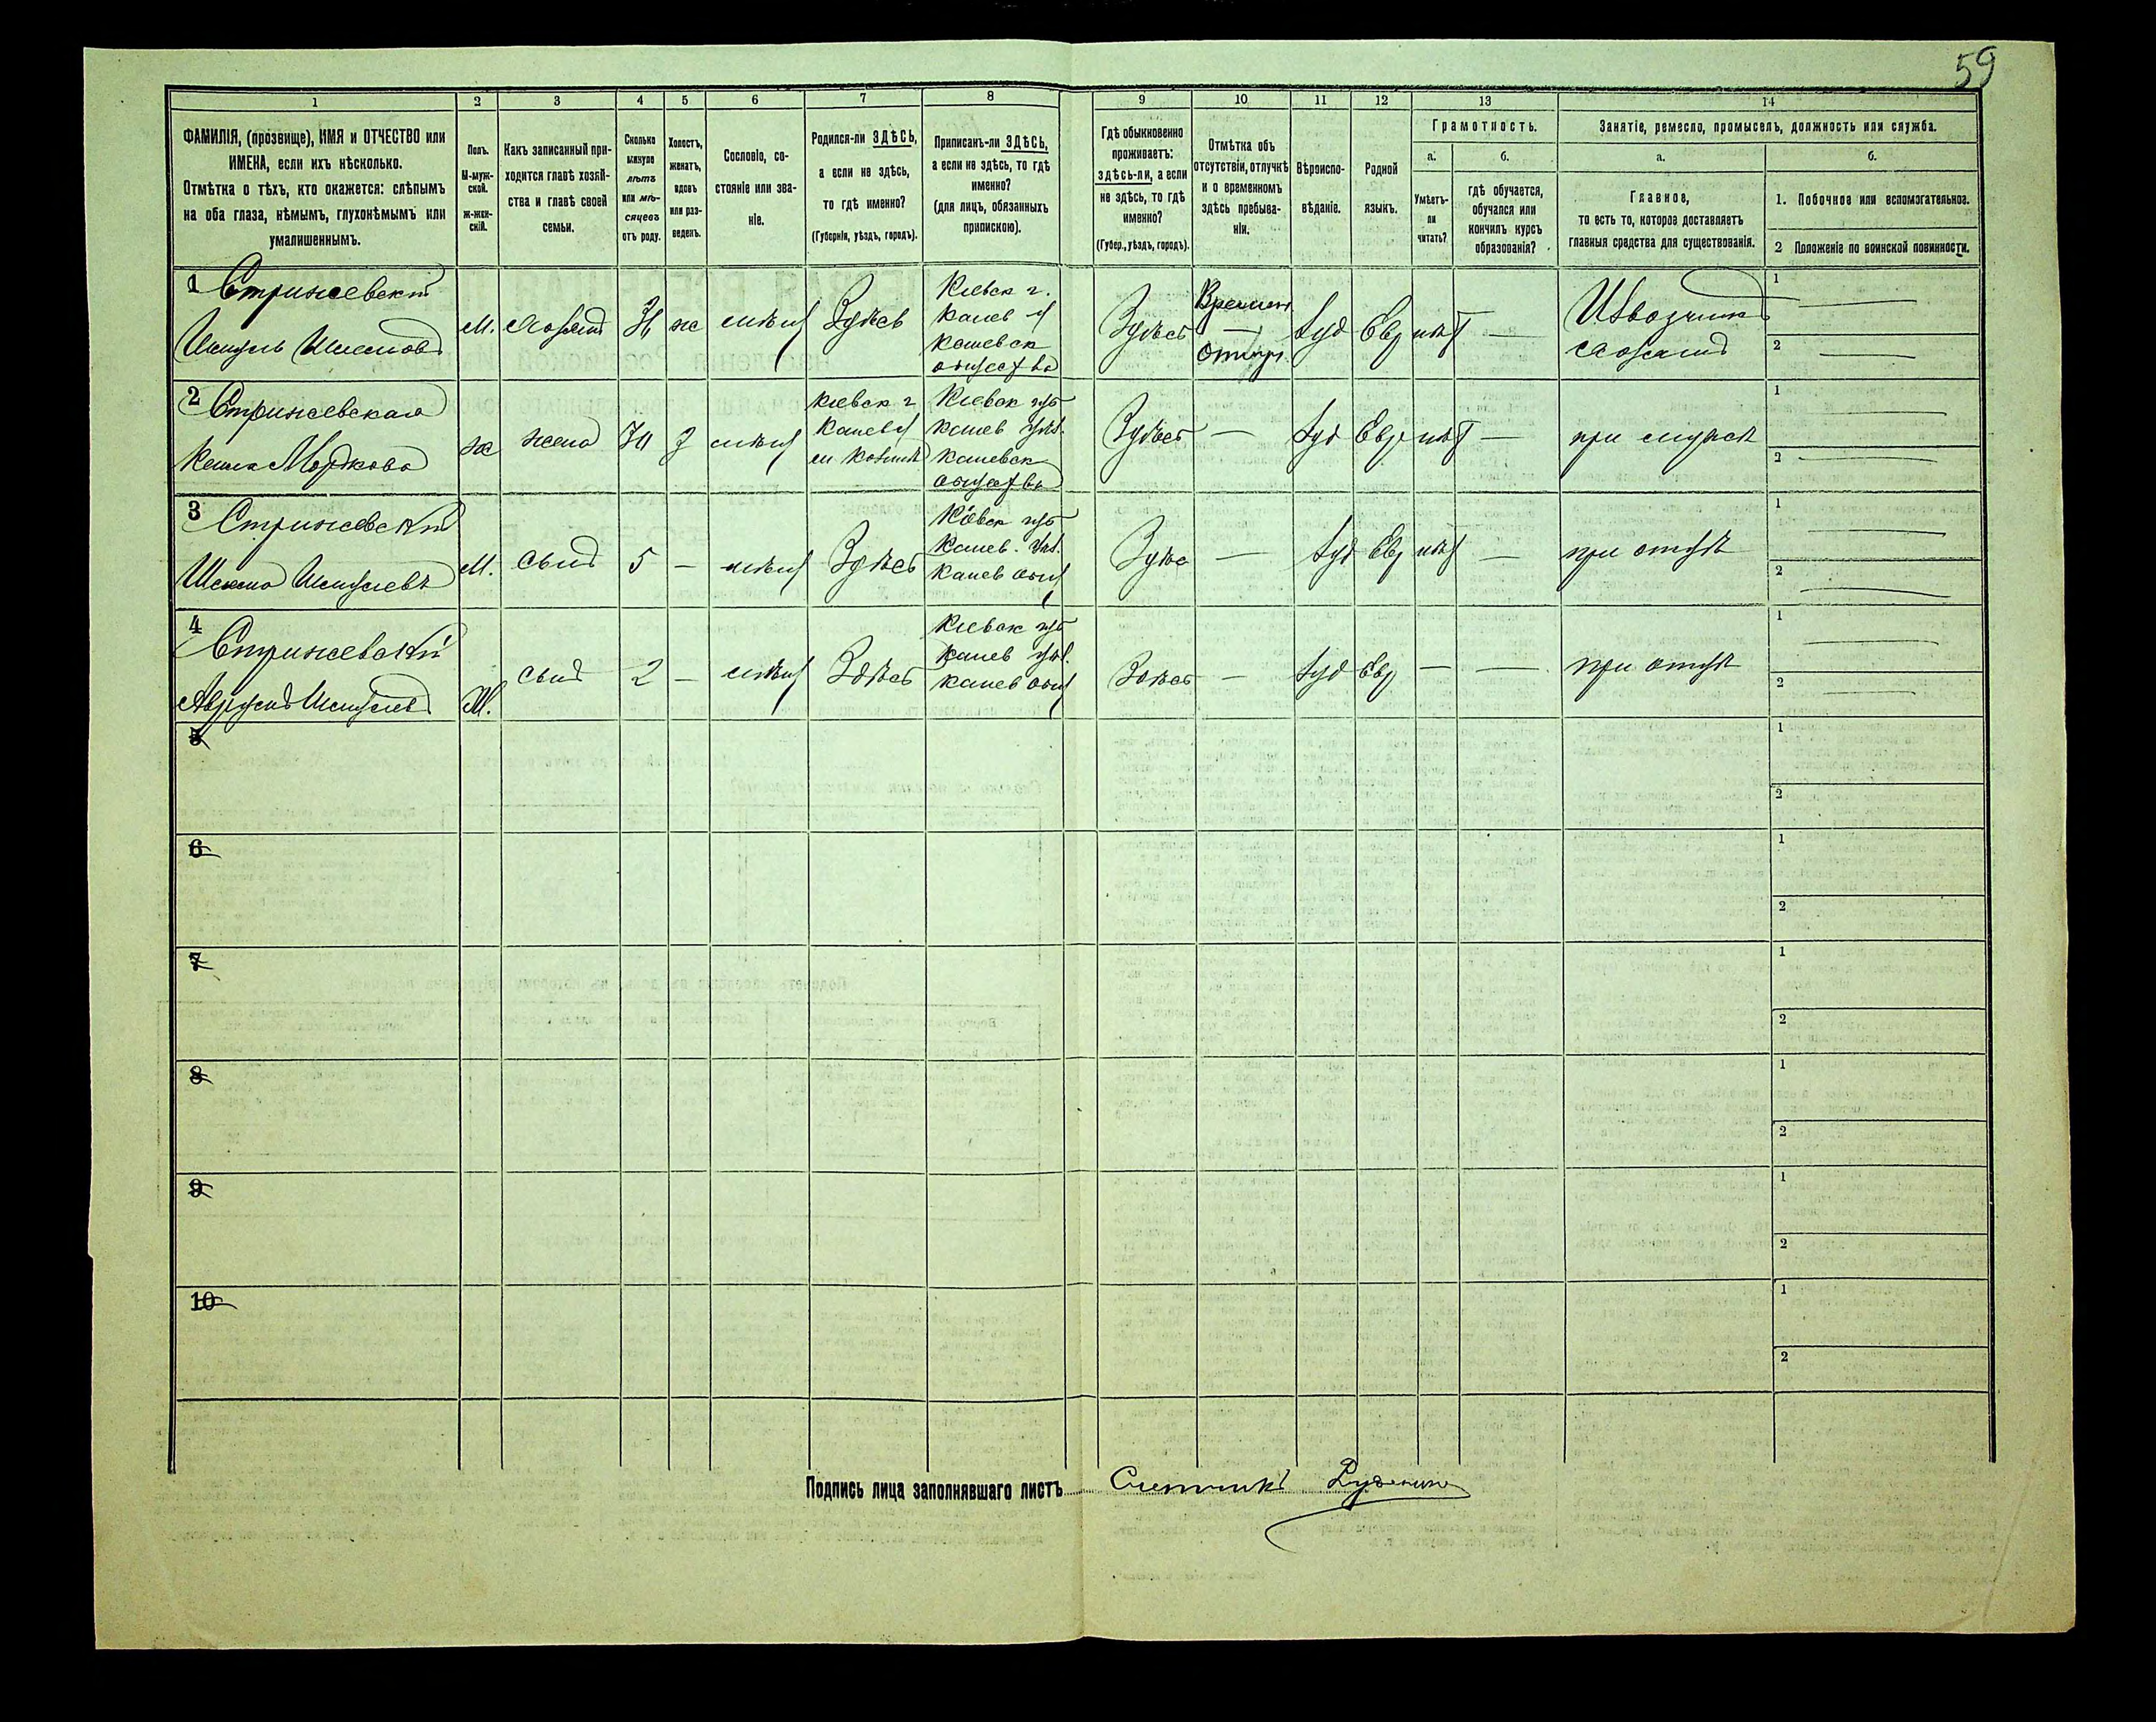 59
1 2 3 4 5 6 7 8 9 10 11 12 13 14
ФАМИЛІЯ, (прозвище), ИМЯ и ОТЧЕСТВО или
ИМЕНА, если ихъ нѣсколько.
Отмѣтка о тѣхъ, кто окажется: слѣпымъ
на оба глаза, нѣмымъ, глухонѣмымъ или
умалишеннымъ.
Полъ.
М-муж-
ской.
ж-жен-
скій.
Какъ записанный при-
ходится главѣ хозяй-
ства и главѣ своей
семьи.
Сколько
минуло
лѣтъ
или мѣ-
сяцевъ
отъ роду.
Холостъ,
женатъ,
вдовъ
или раз-
веденъ.
Сословіе, со-
стояніе или зва-
ніе.
Родился-ли ЗДѢСЬ,
а если не здѣсь,
то гдѣ именно?
(Губернія, уѣздъ, городъ).
Приписанъ-ли ЗДѢСЬ,
а если не здѣсь, то гдѣ
именно?
(для лицъ, обязанныхъ
припискою).
Гдѣ обыкновенно
проживаетъ:
здѣсь-ли, а если
не здѣсь, то гдѣ
именно?
(Губер., уѣздъ, городъ).
Отмѣтка объ
отсутствіи, отлучкѣ
и о временномъ
здѣсь пребыва-
ніи.
Вѣроиспо-
вѣданіе.
Родной
языкъ.
Грамотность.
а.
Умѣетъ-
ли
читать?
б.
гдѣ обучается,
обучался или
кончилъ курсъ
образованія?
Занятіе, ремесло, промыселъ, должность или служба.
а.
Главное,
то есть то, которое доставляетъ
главныя средства для существованія.
б.
1. Побочное или вспомогательное.
2 Положеніе по воинской повинности.
1 Стрижевскій
М. хозяинъ ж Здѣсь
Кіевск г.
Канев
Каневск
общества
Здѣсь
Времен
отлуч.
Іуд Евр нѣт —
Извозчикъ
хозяинъ
1 —
2 —
2 Стрижевская
Мордкова ж жена
Кіевск г
Канев
Кіевск губ
Канев уѣз.
Каневск
общества
Здѣсь — Іуд Евр нѣт — при мужѣ
1 —
2 —
3 Стрижевскій
М. сынъ 5 — Здѣсь
Кіевск губ
Канев. уѣз.
Канев общ
Здѣс — Іуд Евр нѣт — при отцѣ
1 —
2 —
4 Стрижевскій
М. сынъ 2 — Здѣсь
Кіевск губ
Канев уѣз.
Канев общ
Здѣсь — Іуд Евр — — при отцѣ
1 —
2 —
5
1
2
6
1
2
7
1
2
8
1
2
9
1
2
10
1
2
Подпись лица заполнявшаго листъ Счетчикъ